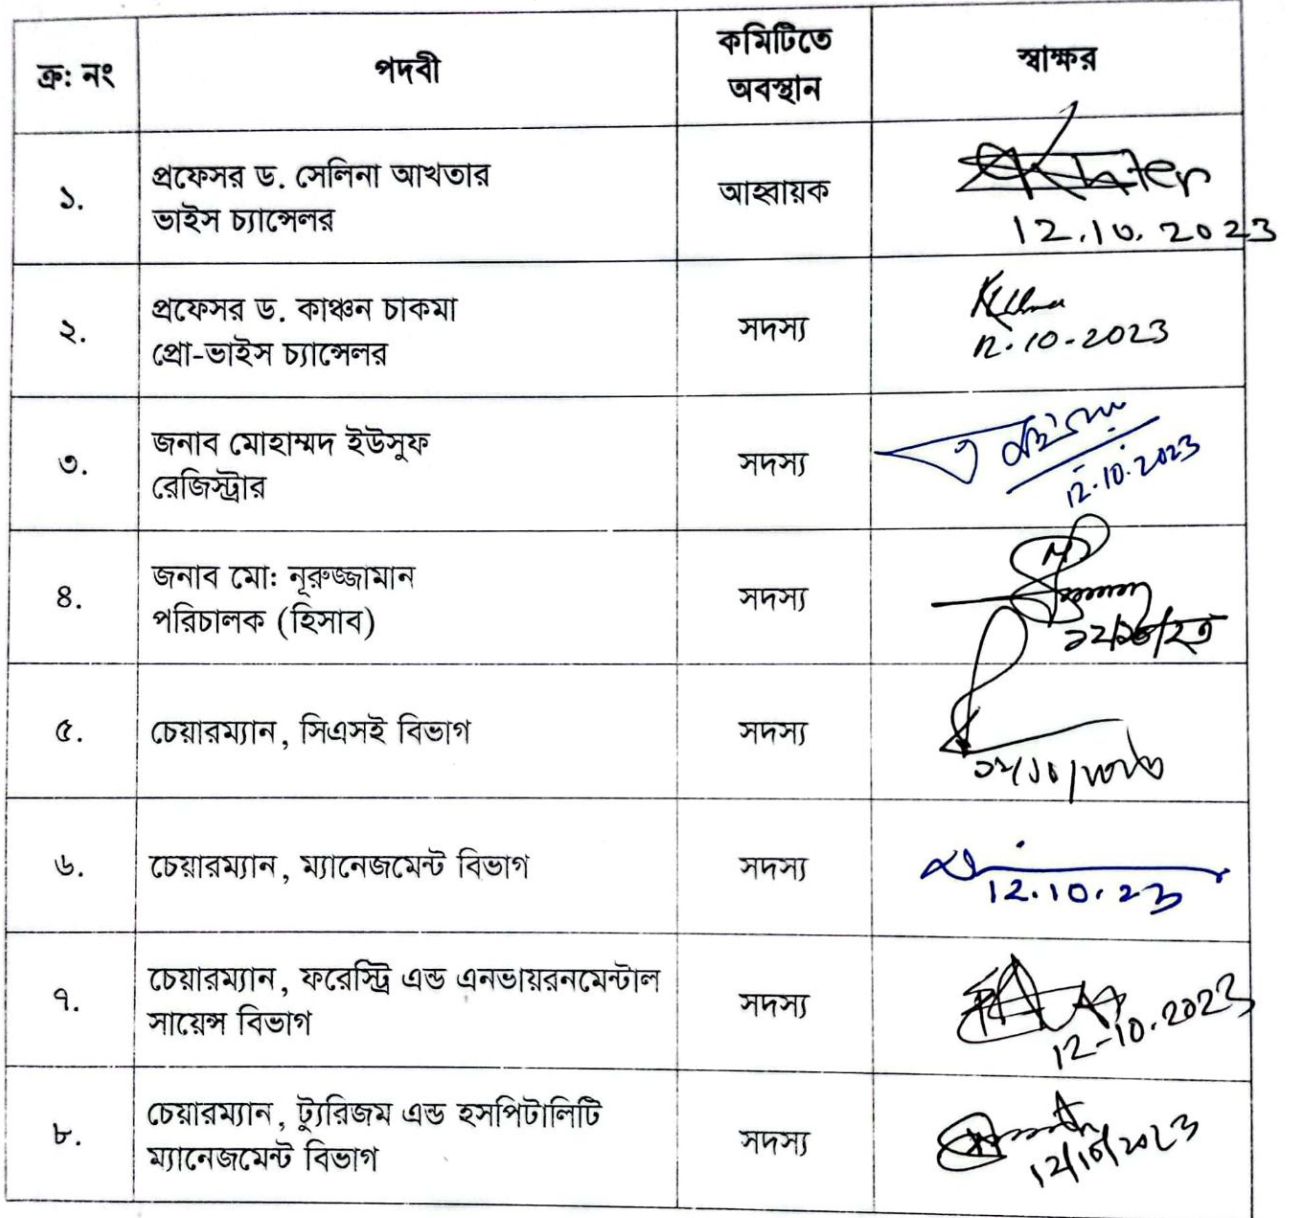 ক্র: নং
পদবী
কমিটিতে
অবস্থান
স্বাক্ষর
১.
প্রফেসর ড. সেলিনা আখতার
ভাইস চ্যান্সেলর
আহ্বায়ক
Akhter
12.10.2023
২.
প্রফেসর ড. কাঞ্চন চাকমা
প্রো-ভাইস চ্যান্সেলর
সদস্য
12.10.2023
৩.
জনাব মোহাম্মদ ইউসুফ
রেজিস্ট্রার
সদস্য
12.10.2023
৪.
জনাব মো: নূরুজ্জামান
পরিচালক (হিসাব)
সদস্য
১২/১০/২৩
৫.
চেয়ারম্যান, সিএসই বিভাগ
সদস্য
৬.
চেয়ারম্যান, ম্যানেজমেন্ট বিভাগ
সদস্য
12.10.23
৭.
চেয়ারম্যান, ফরেস্ট্রি এন্ড এনভায়রনমেন্টাল
সায়েন্স বিভাগ
সদস্য
12-10.2023
৮.
চেয়ারম্যান, ট্যুরিজম এন্ড হসপিটালিটি
ম্যানেজমেন্ট বিভাগ
সদস্য
12/10/2023